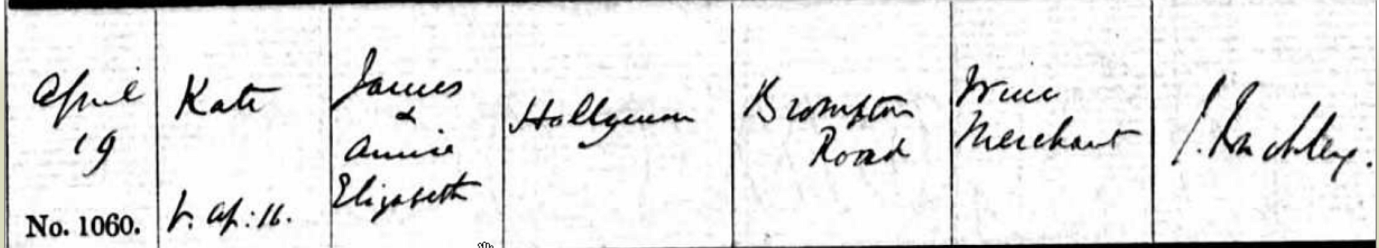 April
19
No. 1060.
Kate
b. Ap: 16.
James
&
Annie
Elizabeth
Hollyman
Brompton
Road
Wine
Merchant